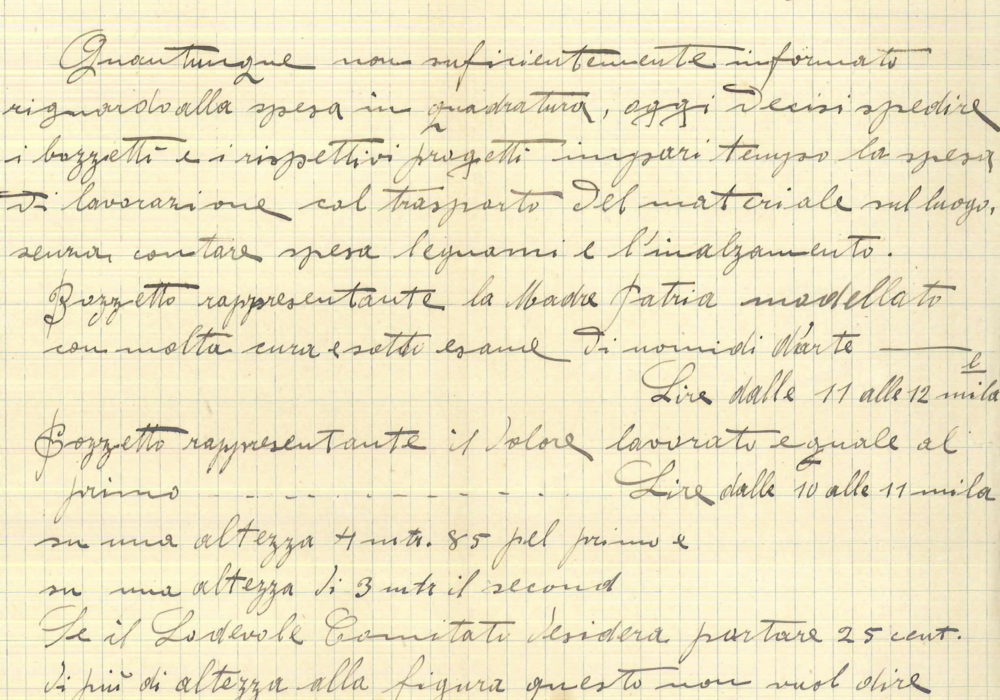 Quantunque non suficientemente informato
riguardo alla spesa in quadratura, oggi decisi spedire
i bozzetti e i rispettivi progetti in pari tempo la spesa
di lavorazione col trasporto del materiale sul luogo,
senza, contare spesa legnami e l'inalzamento.
Bozzetto rappresentante la Madre Patria modellato
con molta cura e sotto esame di uomidi d'arte
Lire dalle 11 alle 12 mila
e
Bozzetto rappresentante il dolore lavorato eguale al
primo - - - - - - - - - - Lire dalle 10 alle 11 mila
su una altezza 4 mtr. 85 pel primo e
su una altezza di 3 mtr il second
Se il Lodevole Comitato desidera portare 25 cent.
di più di altezza alla figura questo non vuol dire